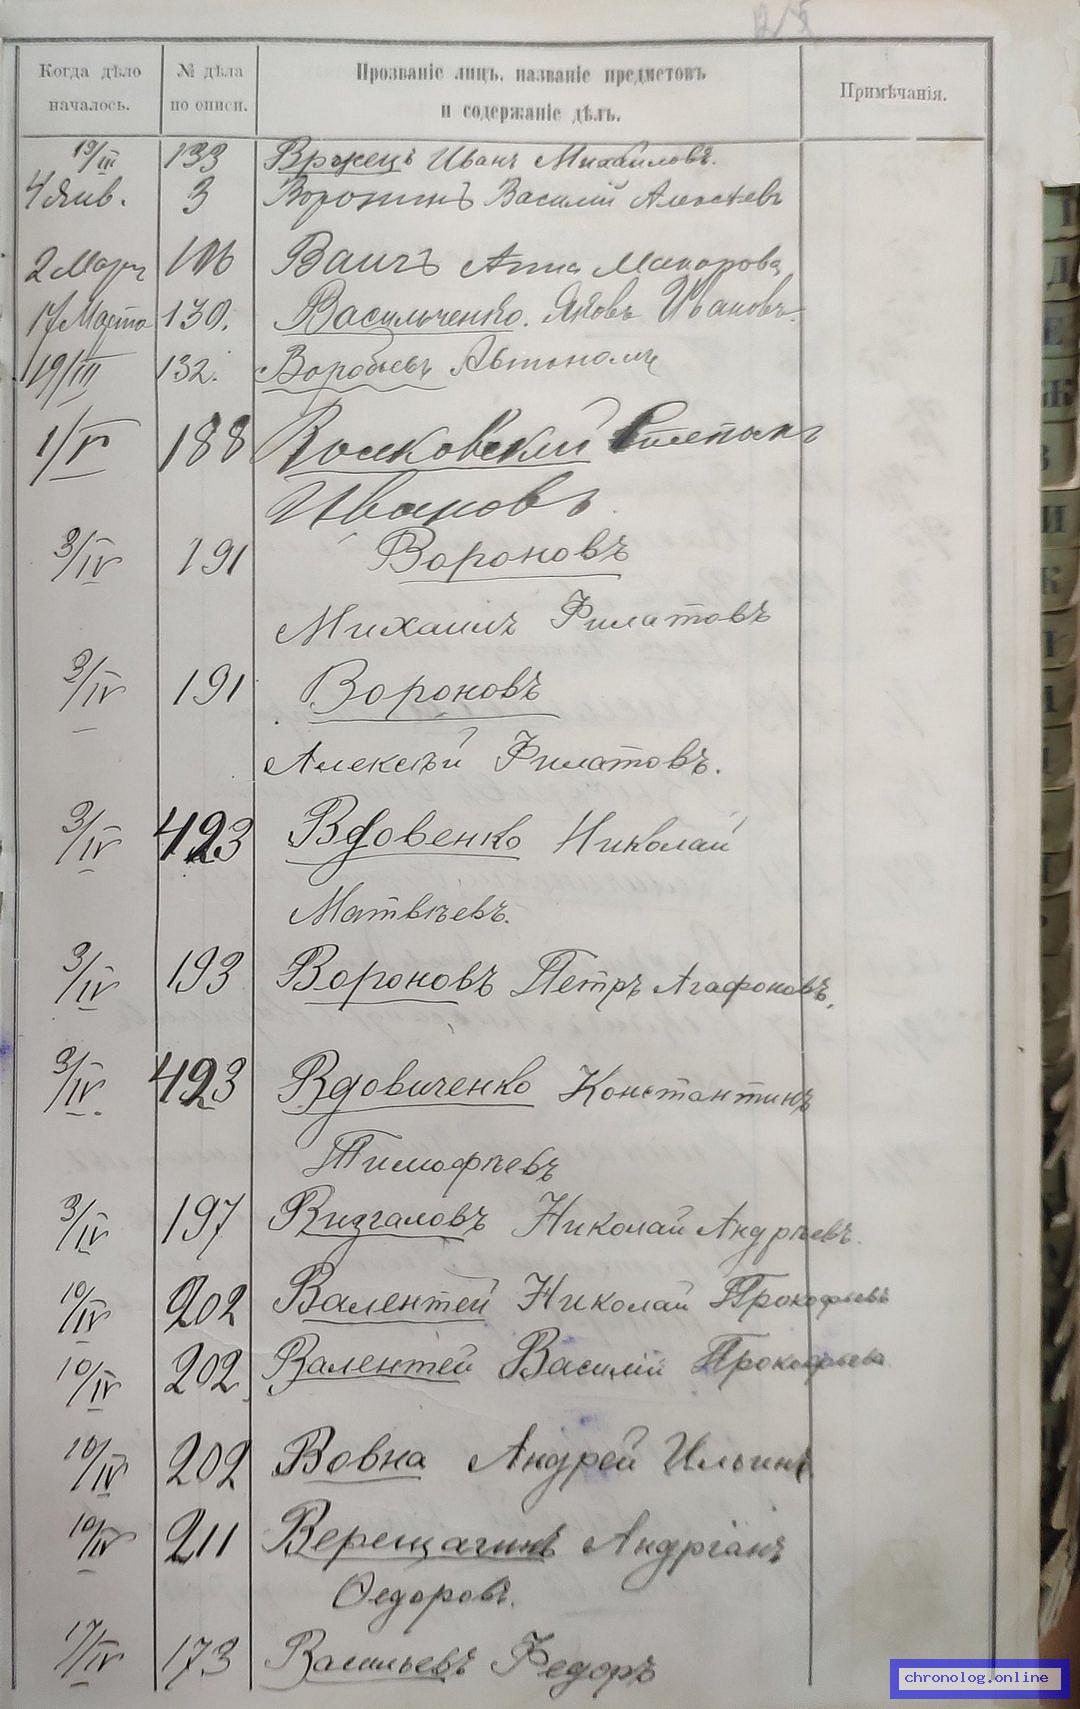 Когда дѣло началось.
№ дѣла по описи.
Прозваніе лицъ, названіе предметовъ
и содержаніе дѣлъ.
Примѣчанія.
19/III 133 Вржецъ Иванъ Михайловъ.
4 Янв. 3 Воронинъ Василій Алексѣевъ
2 Март 106 Ваичъ Анна Макарова
17 Марта 130. Васильченко. Яковъ Ивановъ.
19/III 132. Воробьевъ Автономъ
1/V 188 Волковскій
Ивановъ
3/IV 191 Вороновъ
Михаилъ Филатовъ
3/IV 191 Вороновъ
Алексѣй Филатовъ.
3/IV 423 Вдовенко Николай
Матвѣевъ.
3/IV 193 Вороновъ Петръ Агафоновъ,
3/IV. 423 Вдовиченко Константинъ
Тимофѣевъ
3/IV 197 Визгаловъ Николай Андрѣевъ.
10/IV 202 Валентей Николай Прокофьевъ
10/IV 202 Валентей Василій Прокофьевъ
10/IV 202 Вовна Андрей Ильинъ
10/IV 211 Верещагинъ Андріанъ
Ѳедоровъ.
17/IV 173 Васильевъ Федоръ
chronolog.online